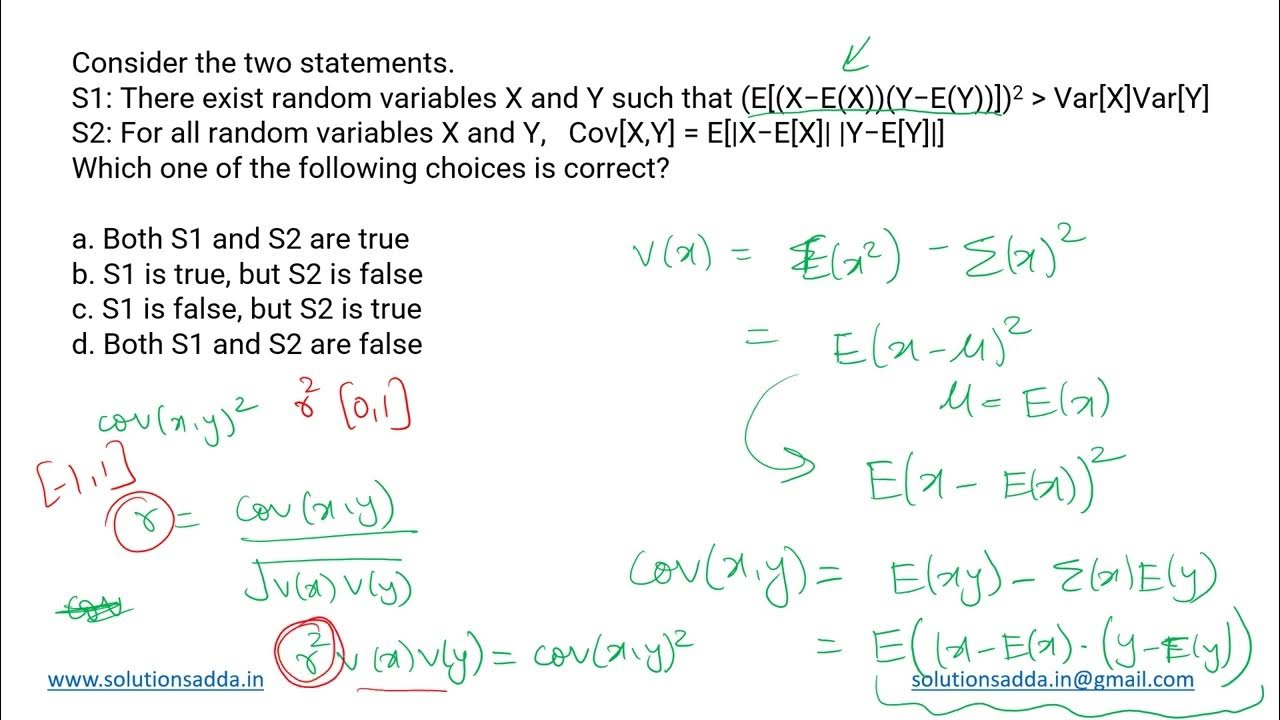 Consider the two statements.
S1: There exist random variables X and Y such that (E[(X−E(X))(Y−E(Y))])² > Var[X]Var[Y]
S2: For all random variables X and Y,   Cov[X,Y] = E[|X−E[X]| |Y−E[Y]|]
Which one of the following choices is correct?
a. Both S1 and S2 are true
b. S1 is true, but S2 is false
c. S1 is false, but S2 is true
d. Both S1 and S2 are false
V(x) = E(x²) − Σ(x)²
= E(x−μ)²
μ = E(x)
E(x − E(x))²
cov(x,y)² r² [0,1]
[-1,1]
r = cov(x,y)
√V(x)V(y)
cov(x,y) = E(xy) − Σ(x)E(y)
r² V(x)V(y) = cov(x,y)²
= E((x−E(x)·(y−E(y))
www.solutionsadda.in
solutionsadda.in@gmail.com